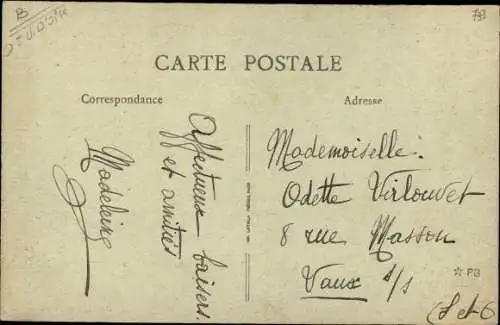 B
793
CARTE POSTALE
Correspondance
Adresse
Affectueux baisers
et amitiés
Madeleine
Mademoiselle
Odette Virlouvet
8 rue Masson
Vaux s/s
☆ PB
(S et O